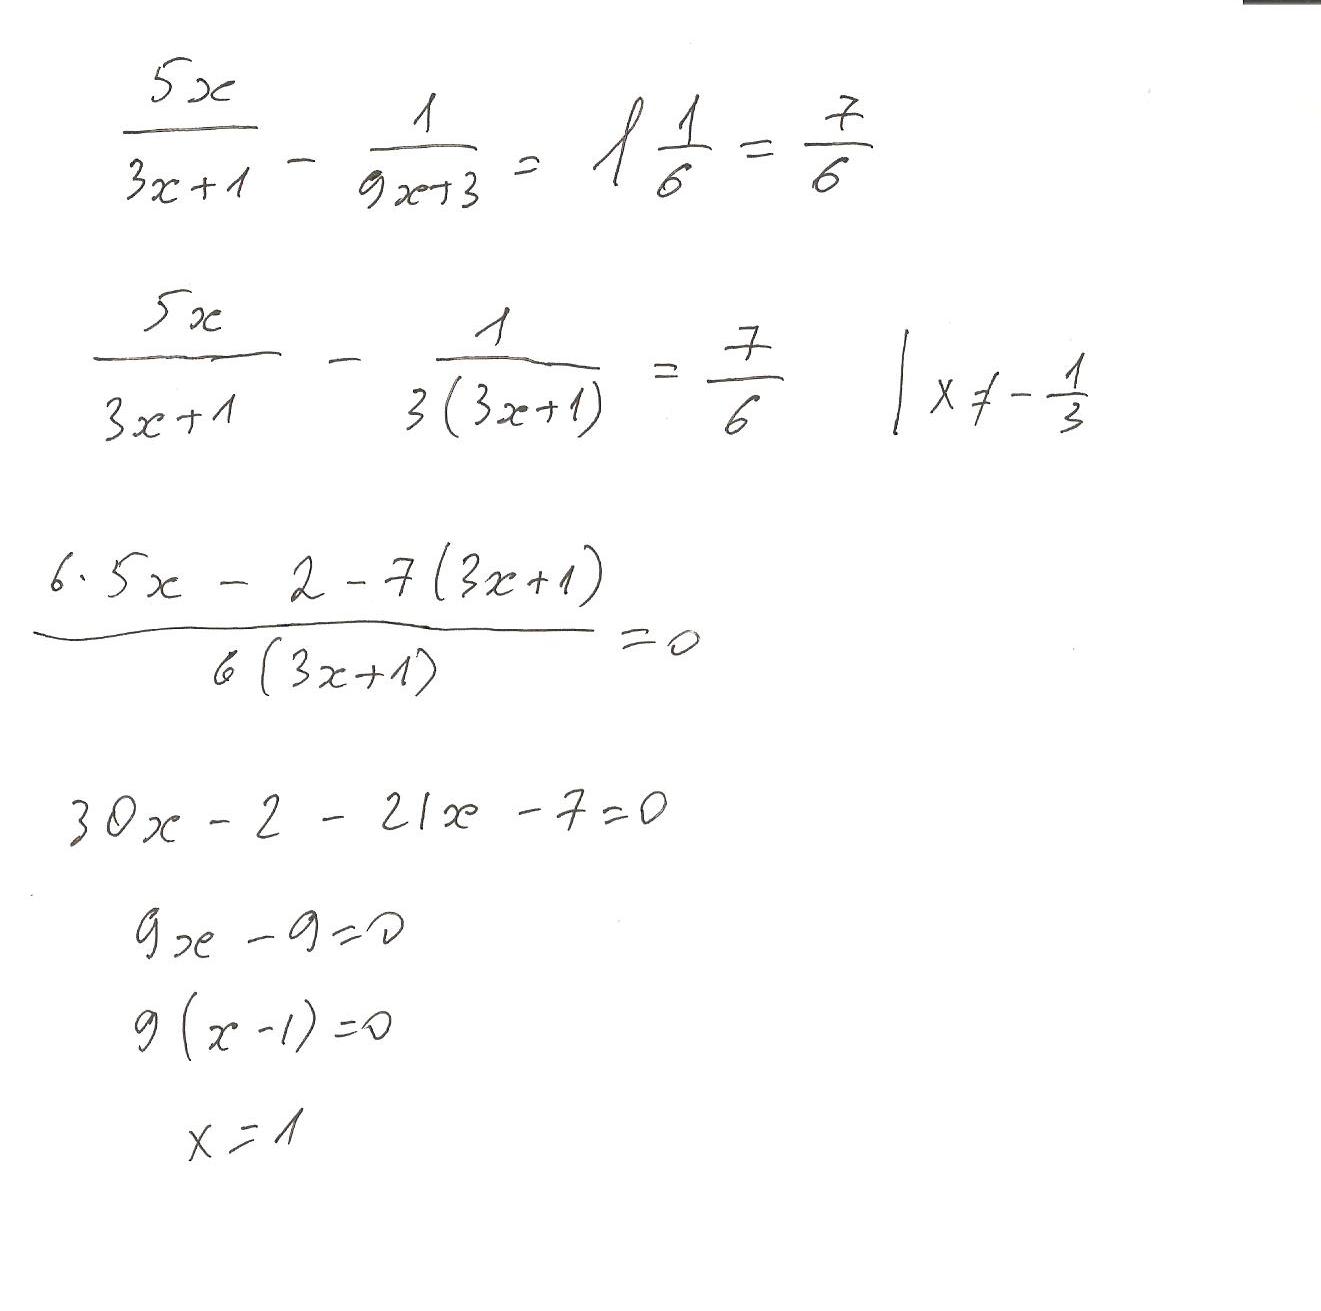 5x/(3x+1) - 1/(9x+3) = 1 1/6 = 7/6
5x/(3x+1) - 1/(3(3x+1)) = 7/6 | x ≠ - 1/3
(6·5x - 2 - 7(3x+1))/(6(3x+1)) = 0
30x - 2 - 21x - 7 = 0
9x - 9 = 0
9(x - 1) = 0
x = 1